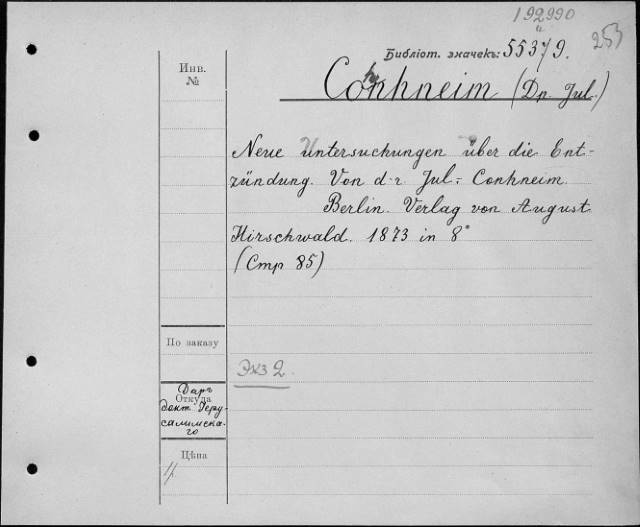 192990
253
Инв.
№
Библіот. значекъ: 55379.
Conhneim (Dr. Jul.)
Neue Untersuchungen über die Ent-
zündung. Von d-r Jul. Conhneim.
Berlin. Verlag von August
Hirschwald. 1873 in 8°
(Стр 85)
По заказу
Экз 2.
Откуда
Даръ
докт. Іеру-
салимска-
го
Цѣна